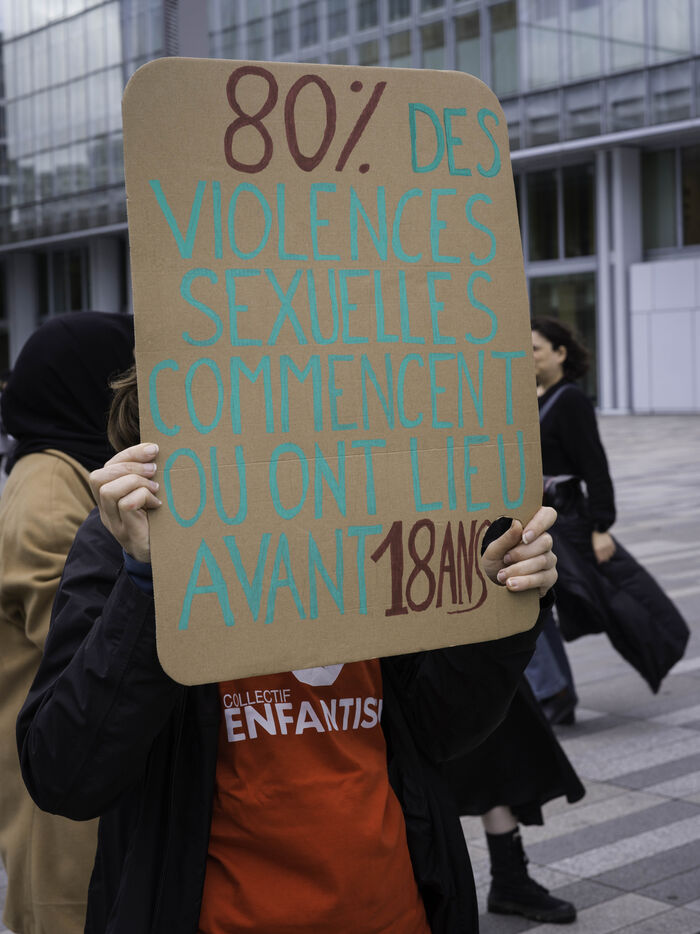 80% DES
VIOLENCES
SEXUELLES
COMMENCENT
OU ONT LIEU
AVANT 18 ANS
COLLECTIF
ENFANTIS